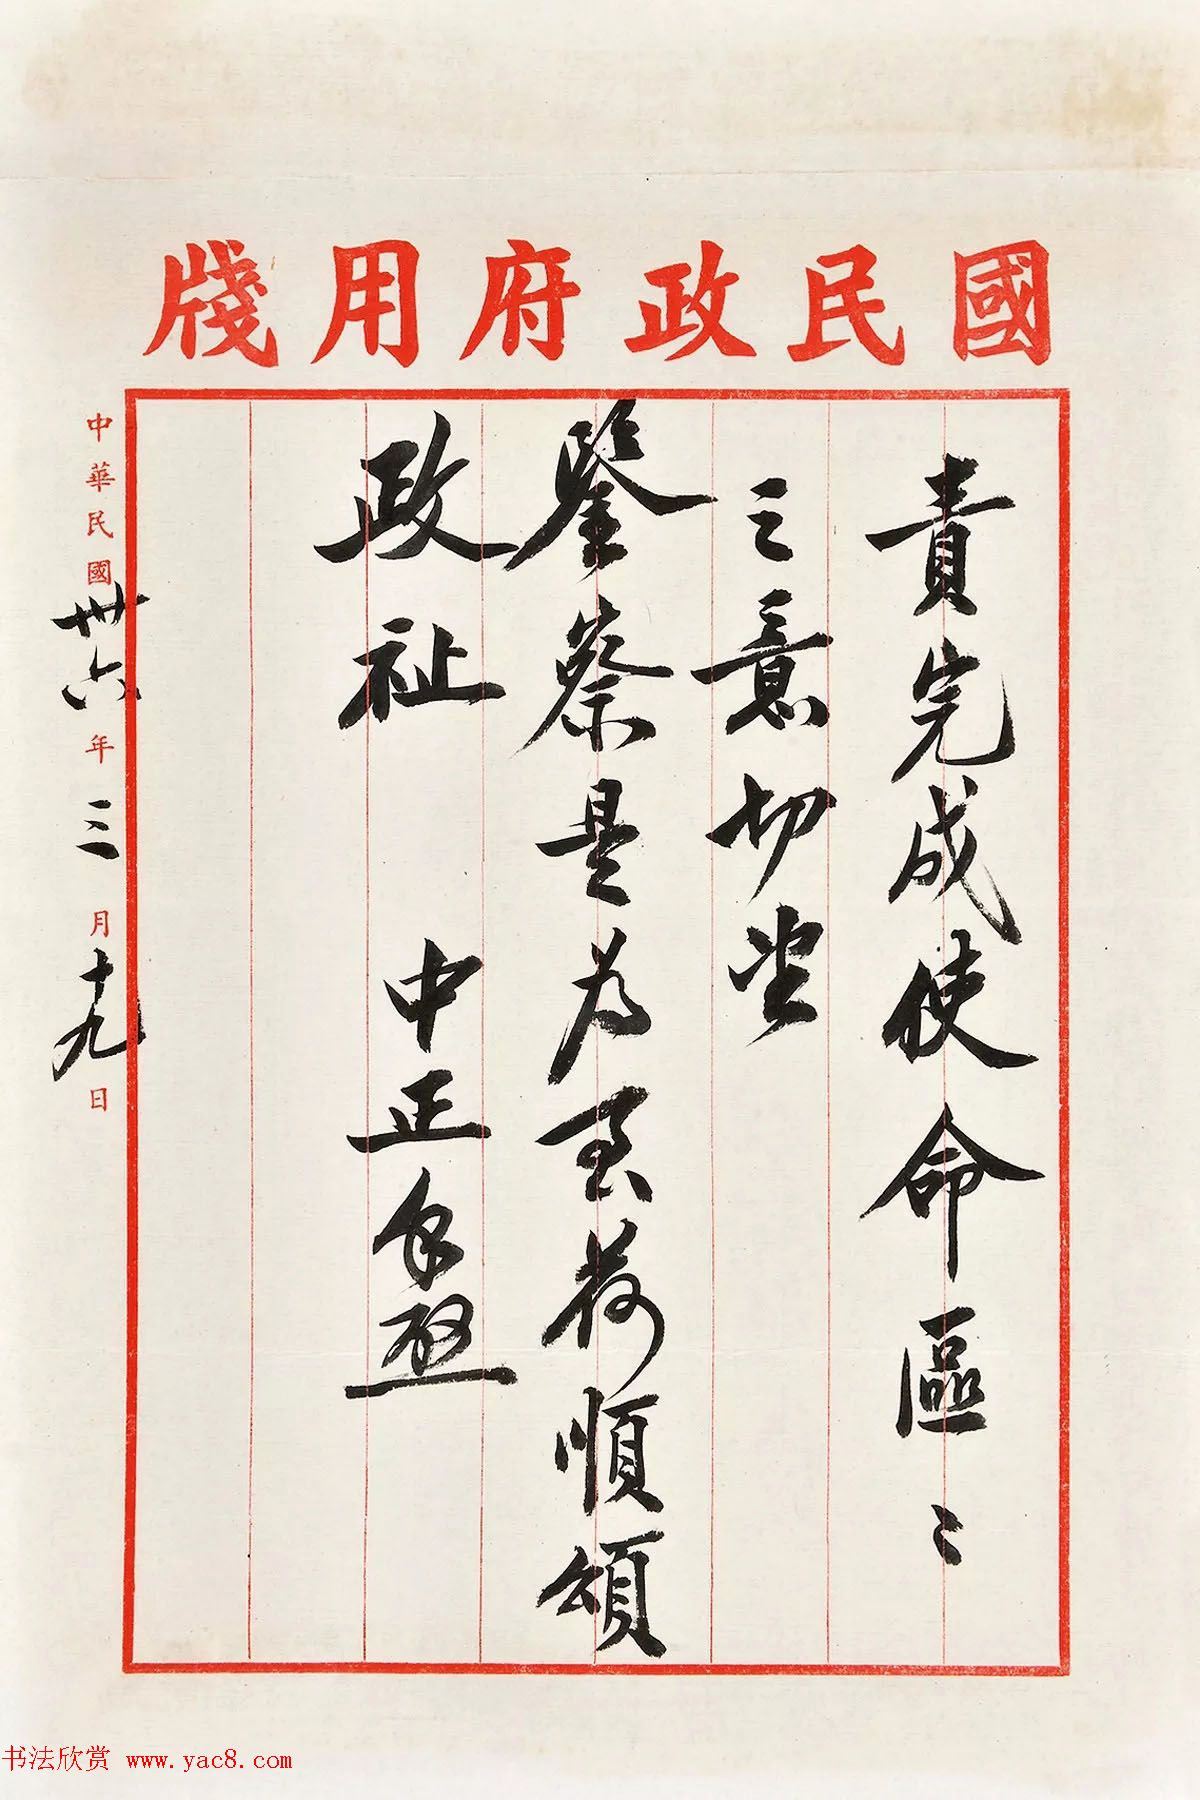 國民政府用牋
責完成使命區〻
之意切望
鑒察是為至荷順頌
政祉
中正手啟
中華民國卅六年三月十九日
书法欣赏 www.yac8.com